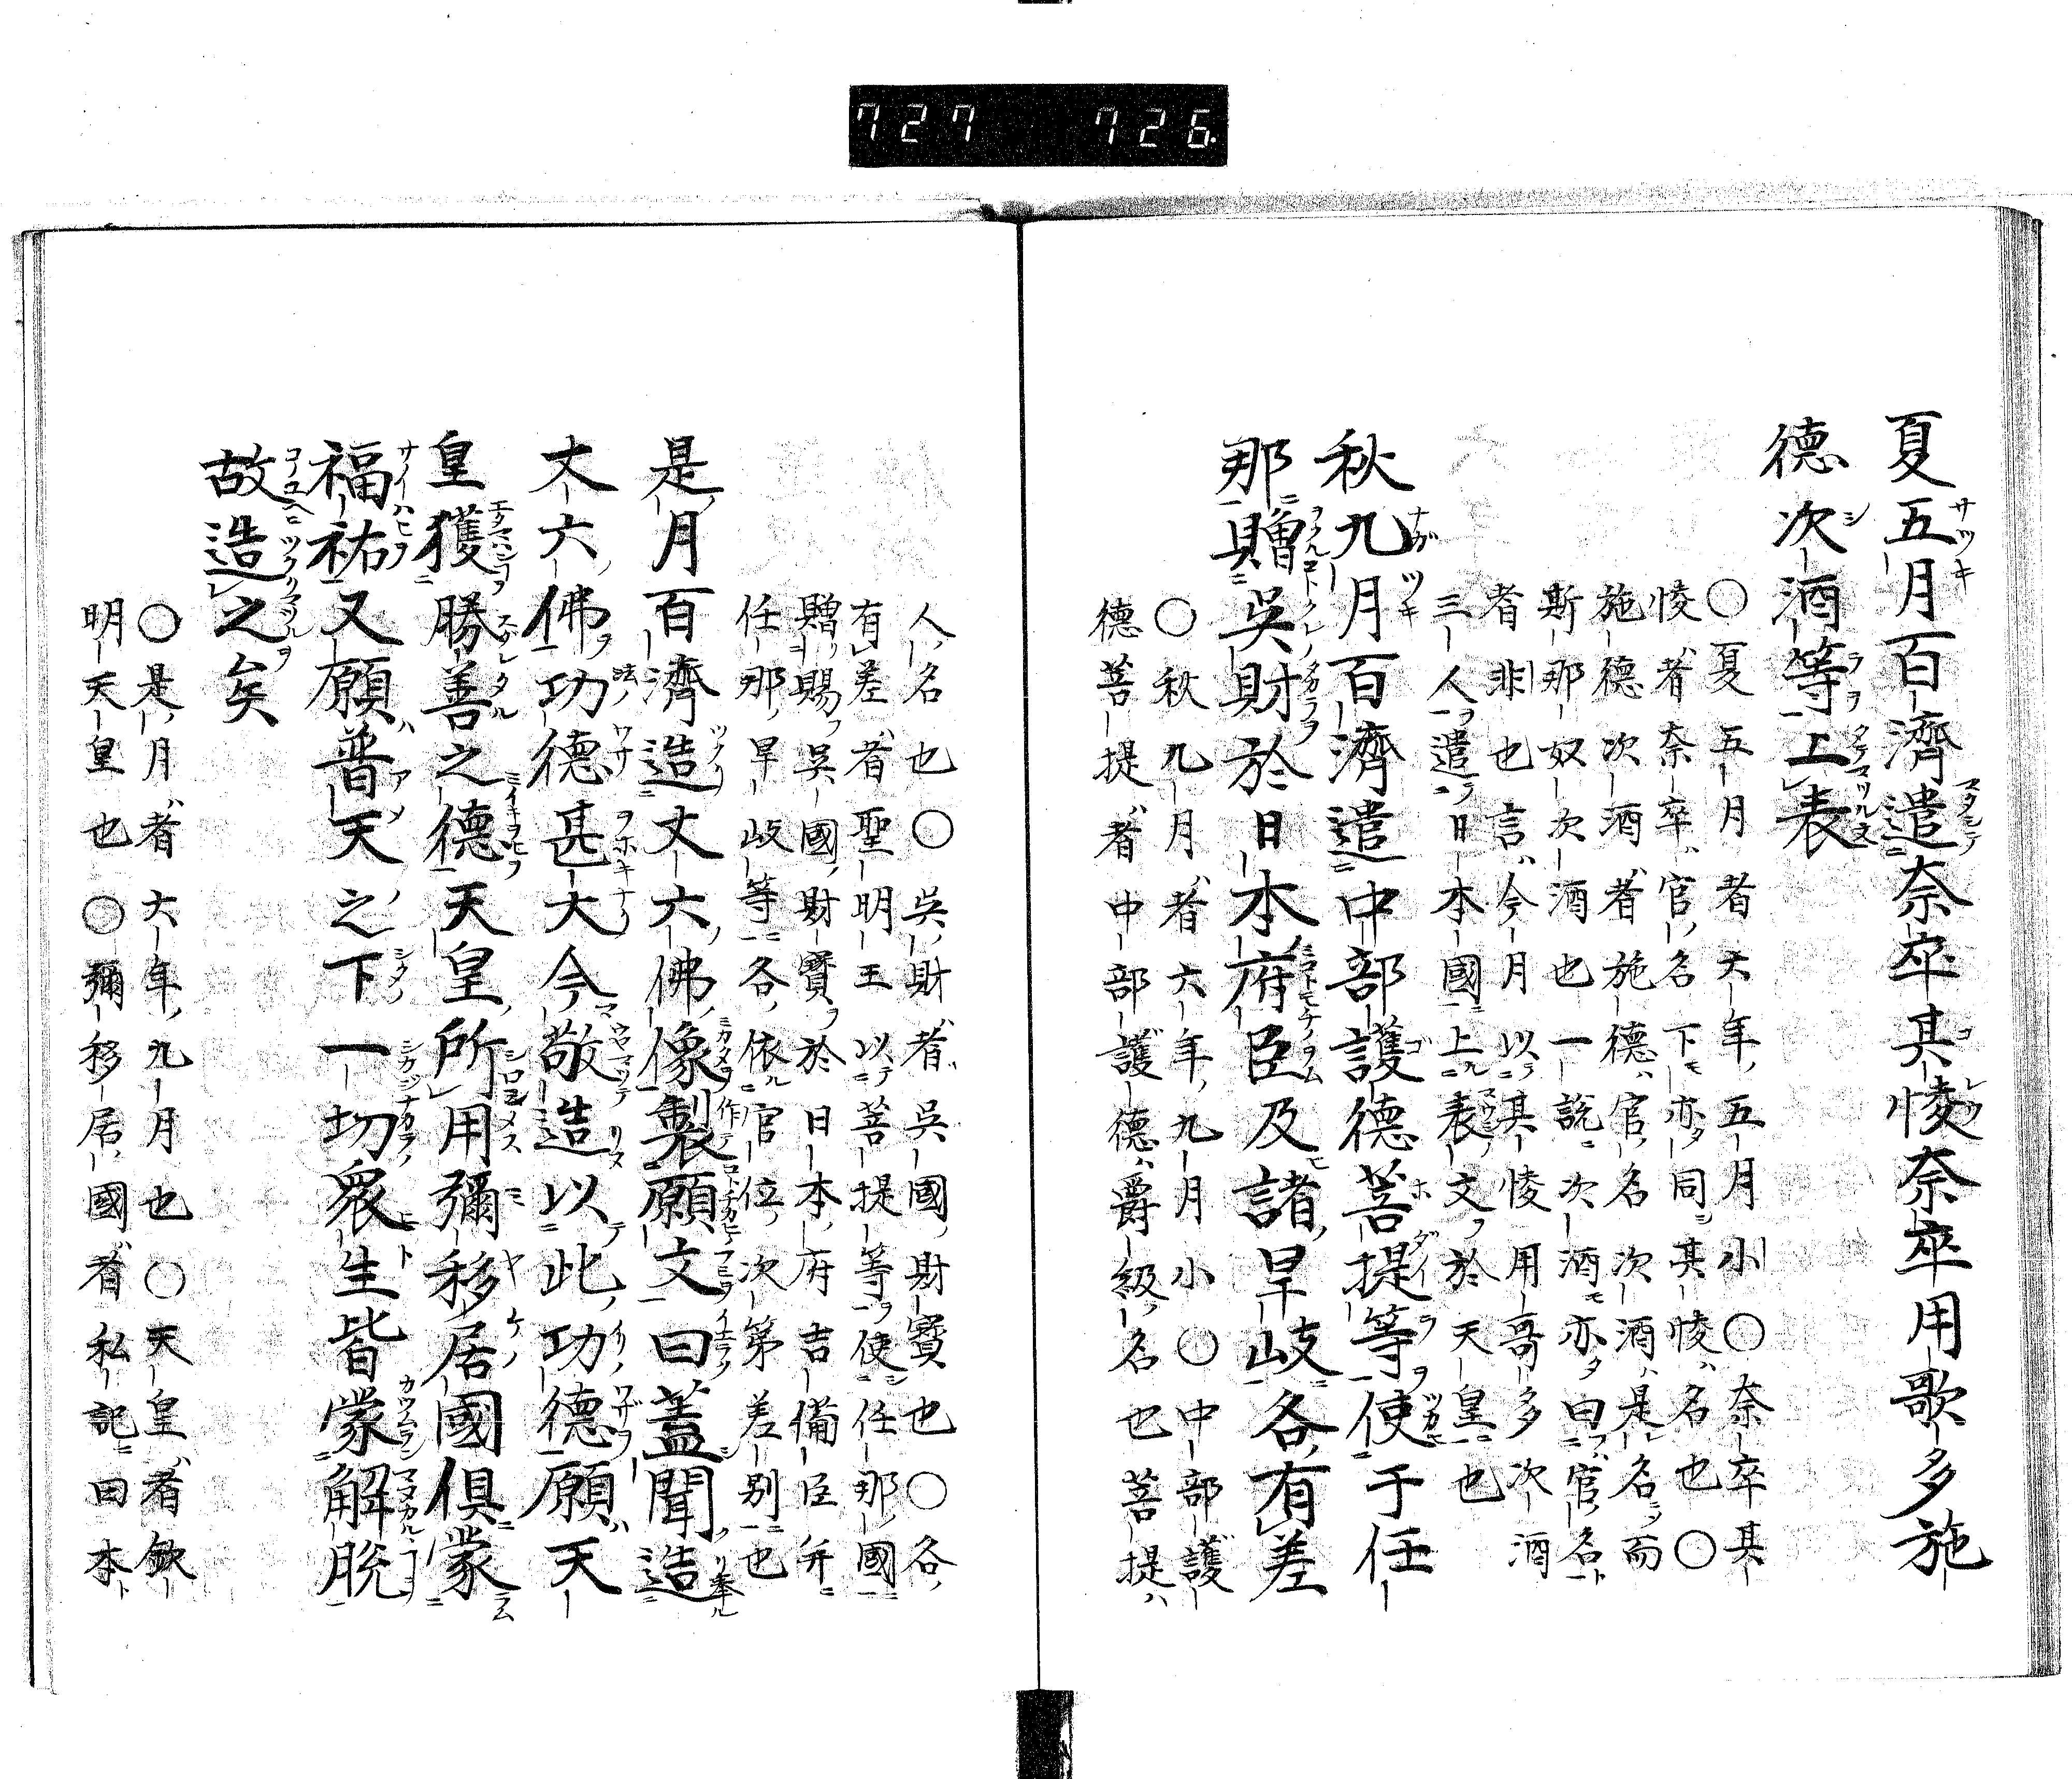 727 726
夏五月百濟遣奈卒其㥄奈卒用歌多施
德次酒等上表
○夏五月者六年五月小○奈卒其
㥄者奈卒官名下亦同其㥄名也○
施德次酒者施德官名次酒是名而
斯那奴次酒也一説次酒亦曰官名
者非也言今月以其㥄用哥多次酒
三人遣日本國上表文於天皇也
秋九月百濟遣中部護德菩提等使于任
那贈吳財於日本府臣及諸旱岐各有差
○秋九月者六年九月小○中部護
德菩提者中部護德爵級名也菩提
人名也○吳財者吳國財寳也○各
有差者聖明王以菩提等使任那國
贈賜吳國財寳於日本府吉備臣并
任那旱岐等各依官位次第差別也
是月百濟造丈六佛像製願文曰蓋聞造
丈六佛功德甚大今敬造以此功德願天
皇獲勝善之德天皇所用彌移居國俱蒙
福祐又願普天之下一切衆生皆蒙解脱
故造之矣
○是月者六年九月也○天皇者欽
明天皇也○彌移居國者私記曰本